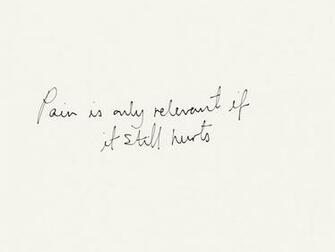 Pain is only relevant if
it still hurts